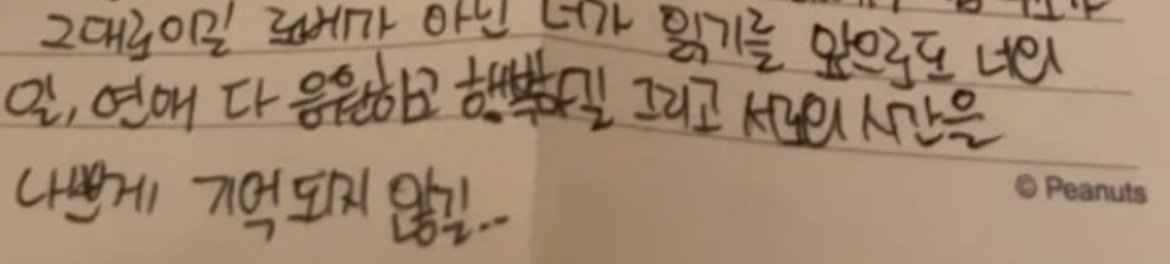 그대로이길 로버가 아닌 너가 읽기를 앞으로도 너의
일, 연애 다 응원하고 행복하길 그리고 서로의 시간을
나쁘게 기억되지 않길...
© Peanuts